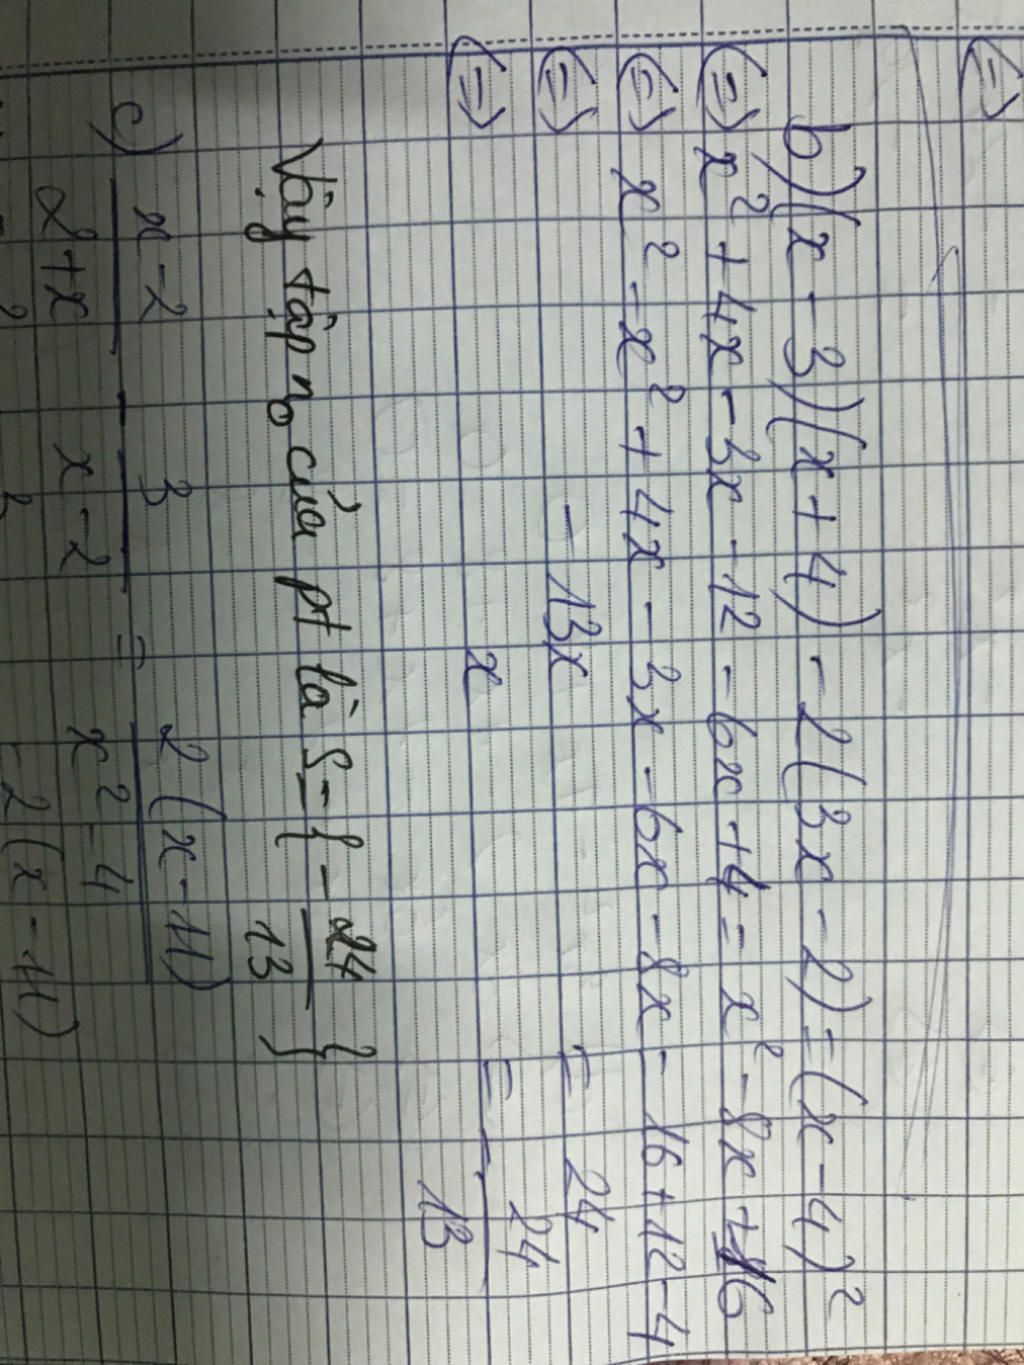 (=)
b) (x - 3)(x + 4) - 2(3x - 2) = (x - 4)²
(=) x² + 4x - 3x - 12 - 6x + 4 = x² - 8x + 16
(=) x² - x² + 4x - 3x - 6x - 8x = 16 + 12 - 4
(=) - 13x = 24
(=) x = - 24/13
Vậy tập no của pt là S = { - 24/13 }
c) x - 2 / 2 + x - 3 / x - 2 = 2(x - 11) / x² - 4
2(x - 11)